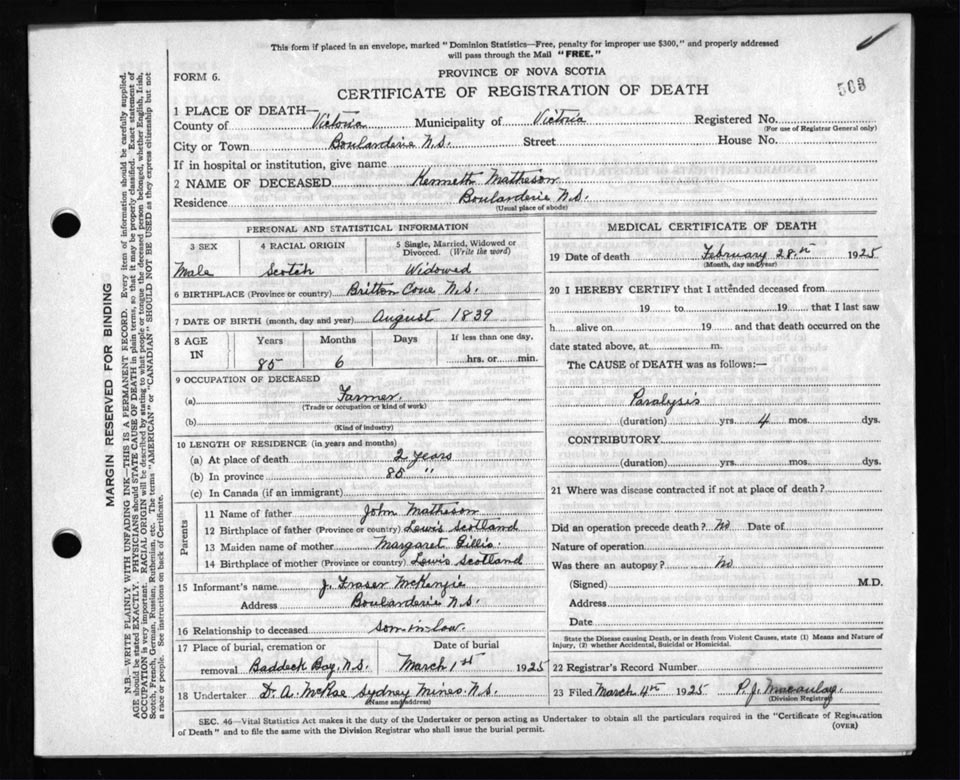 This form if placed in an envelope, marked "Dominion Statistics—Free, penalty for improper use $300," and properly addressed
will pass through the Mail "FREE."
FORM 6.
PROVINCE OF NOVA SCOTIA
CERTIFICATE OF REGISTRATION OF DEATH
503
1 PLACE OF DEATH—
County of Victoria Municipality of Victoria Registered No.
(For use of Registrar General only)
City or Town Boularderie N.S. Street House No.
If in hospital or institution, give name
2 NAME OF DECEASED Kenneth Matheson
Residence Boularderie N.S.
(Usual place of abode)
PERSONAL AND STATISTICAL INFORMATION
3 SEX 4 RACIAL ORIGIN 5 Single, Married, Widowed or
Divorced. (Write the word)
Male Scotch Widowed
6 BIRTHPLACE (Province or country) Britton Cove N.S.
7 DATE OF BIRTH (month, day and year) August 1839
8 AGE IN Years Months Days If less than one day,
85 6 hrs. or min.
9 OCCUPATION OF DECEASED
(a) Farmer
(Trade or occupation or kind of work)
(b)
(Kind of industry)
10 LENGTH OF RESIDENCE (in years and months)
(a) At place of death 2 years
(b) In province 85 "
(c) In Canada (if an immigrant)
Parents
11 Name of father John Matheson
12 Birthplace of father (Province or country) Lewis Scotland
13 Maiden name of mother Margaret Gillis
14 Birthplace of mother (Province or country) Lewis Scotland
15 Informant's name J. Fraser McKenzie
Address Boularderie N.S.
16 Relationship to deceased son in law
17 Place of burial, cremation or Date of burial
removal Baddeck Bay, N.S. March 1st 1925
18 Undertaker D. A. McRae Sydney Mines N.S.
(Name and address)
MEDICAL CERTIFICATE OF DEATH
19 Date of death February 28th 1925
(Month, day and year)
20 I HEREBY CERTIFY that I attended deceased from
19 to 19 that I last saw
h alive on 19 and that death occurred on the
date stated above, at m.
The CAUSE of DEATH was as follows:—
Paralysis
(duration) yrs. 4 mos. dys.
CONTRIBUTORY
(duration) yrs. mos. dys.
21 Where was disease contracted if not at place of death?
Did an operation precede death? No Date of
Nature of operation
Was there an autopsy? No
(Signed) M.D.
Address
Date
State the Disease causing Death, or in death from Violent Causes, state (1) Means and Nature of
Injury, (2) whether Accidental, Suicidal or Homicidal.
22 Registrar's Record Number
23 Filed March 4th 1925 P. J. Macaulay
(Division Registrar)
SEC. 46—Vital Statistics Act makes it the duty of the Undertaker or person acting as Undertaker to obtain all the particulars required in the "Certificate of Registration
of Death" and to file the same with the Division Registrar who shall issue the burial permit.
(OVER)
MARGIN RESERVED FOR BINDING
N.B.—WRITE PLAINLY WITH UNFADING INK—THIS IS A PERMANENT RECORD. Every item of information should be carefully supplied.
AGE should be stated EXACTLY. PHYSICIANS should STATE CAUSE OF DEATH in plain terms, so that it may be properly classified. Exact statement of
OCCUPATION is very important. RACIAL ORIGIN will be described by stating to what people or tongue the deceased person belonged, whether English, Irish,
Scotch, French, German, Russian, Ruthenian, etc. The terms "AMERICAN" or "CANADIAN" SHOULD NOT BE USED as they express citizenship but not
a race or people. See instructions on back of Certificate.